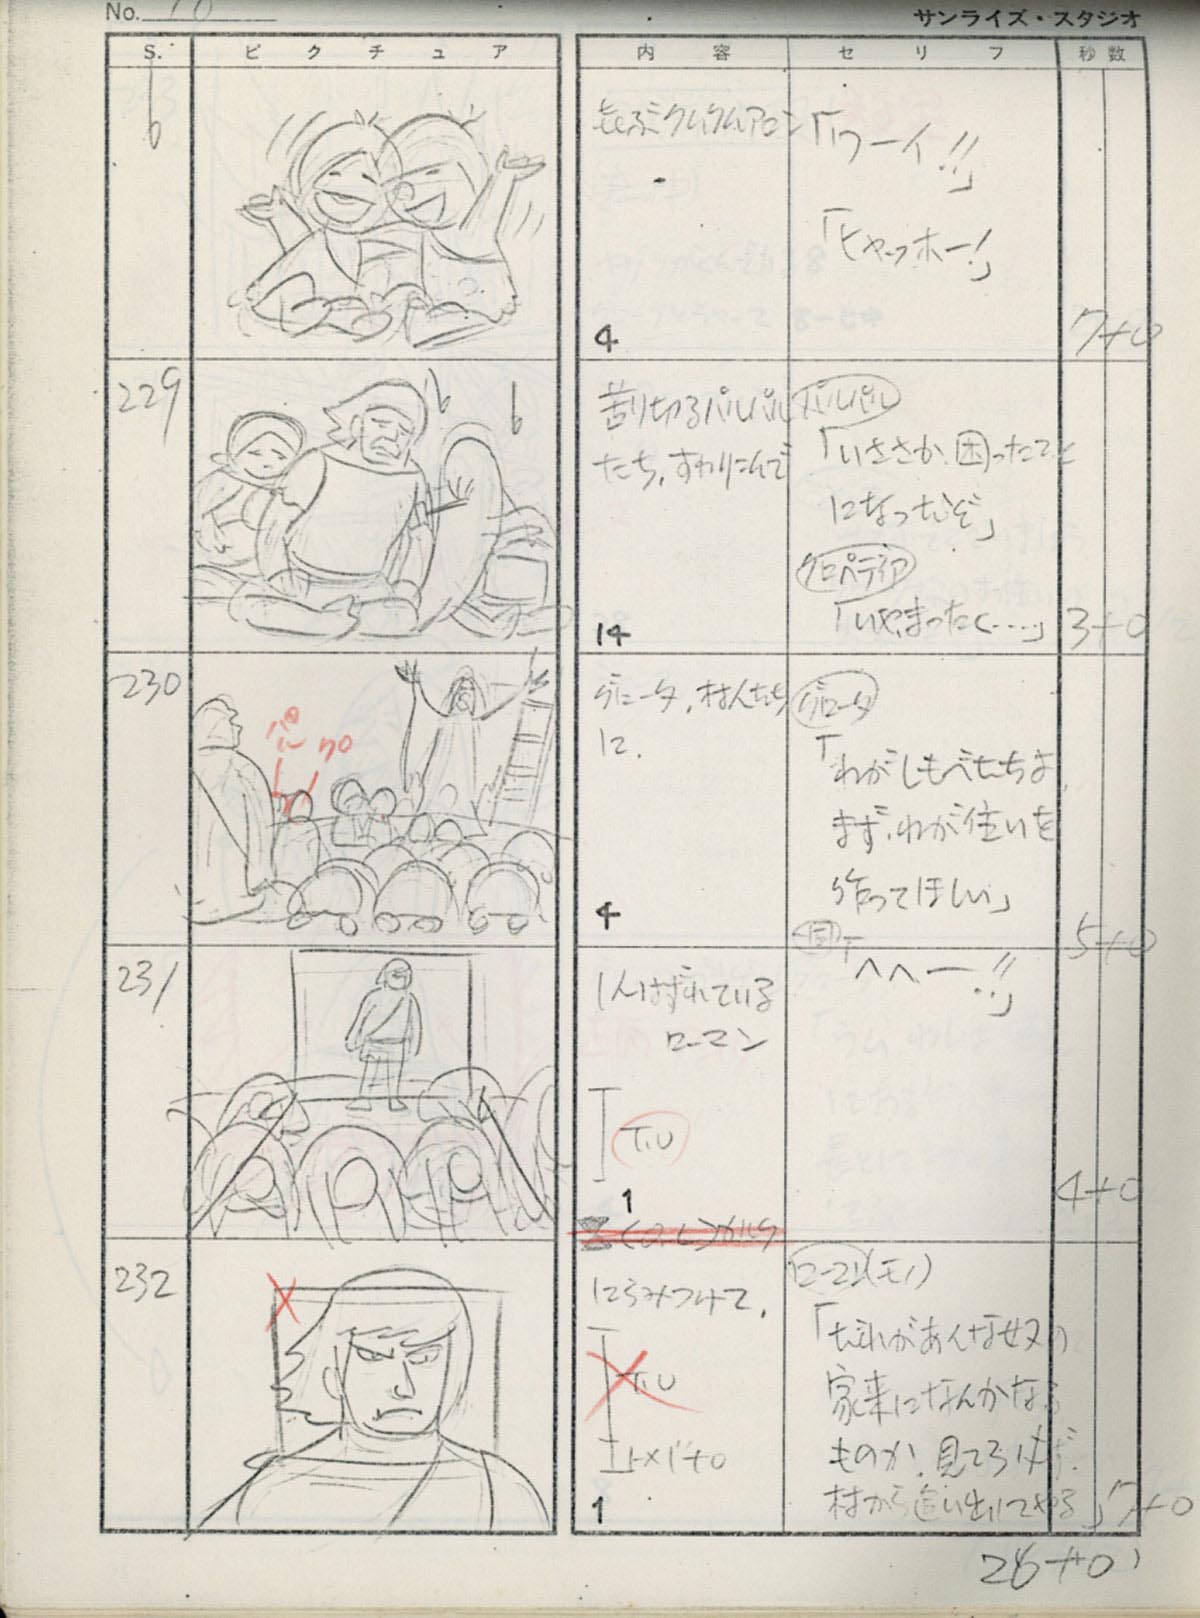 No. 10
サンライズ・スタジオ
S. ピクチュア 内容 セリフ 秒数
喜ぶクムクムアロン
「ワーイ!!」
「ヒャッホー!」
4
7+0
229
苦り切るパルパル
たち、すわりこんで
パルパル
「いささか困ったこと
になったぞ」
クロペディア
「いやまったく……」
14
3+0
230
パル クロ
グロータ、村人たち
に、
グロータ
「わがしもべたちよ、
まず、わが住いを
作ってほしい」
4
5+0
231
1人はずれている
ローマン
「へへー!!」
T.U
1
4+0
232
にらみつけて、
T.U
1
ローマン(モノ)
「だれがあんな奴の
家来になんかなる
ものか、見てろ必ず、
村から追い出してやる」
7+0
26+0